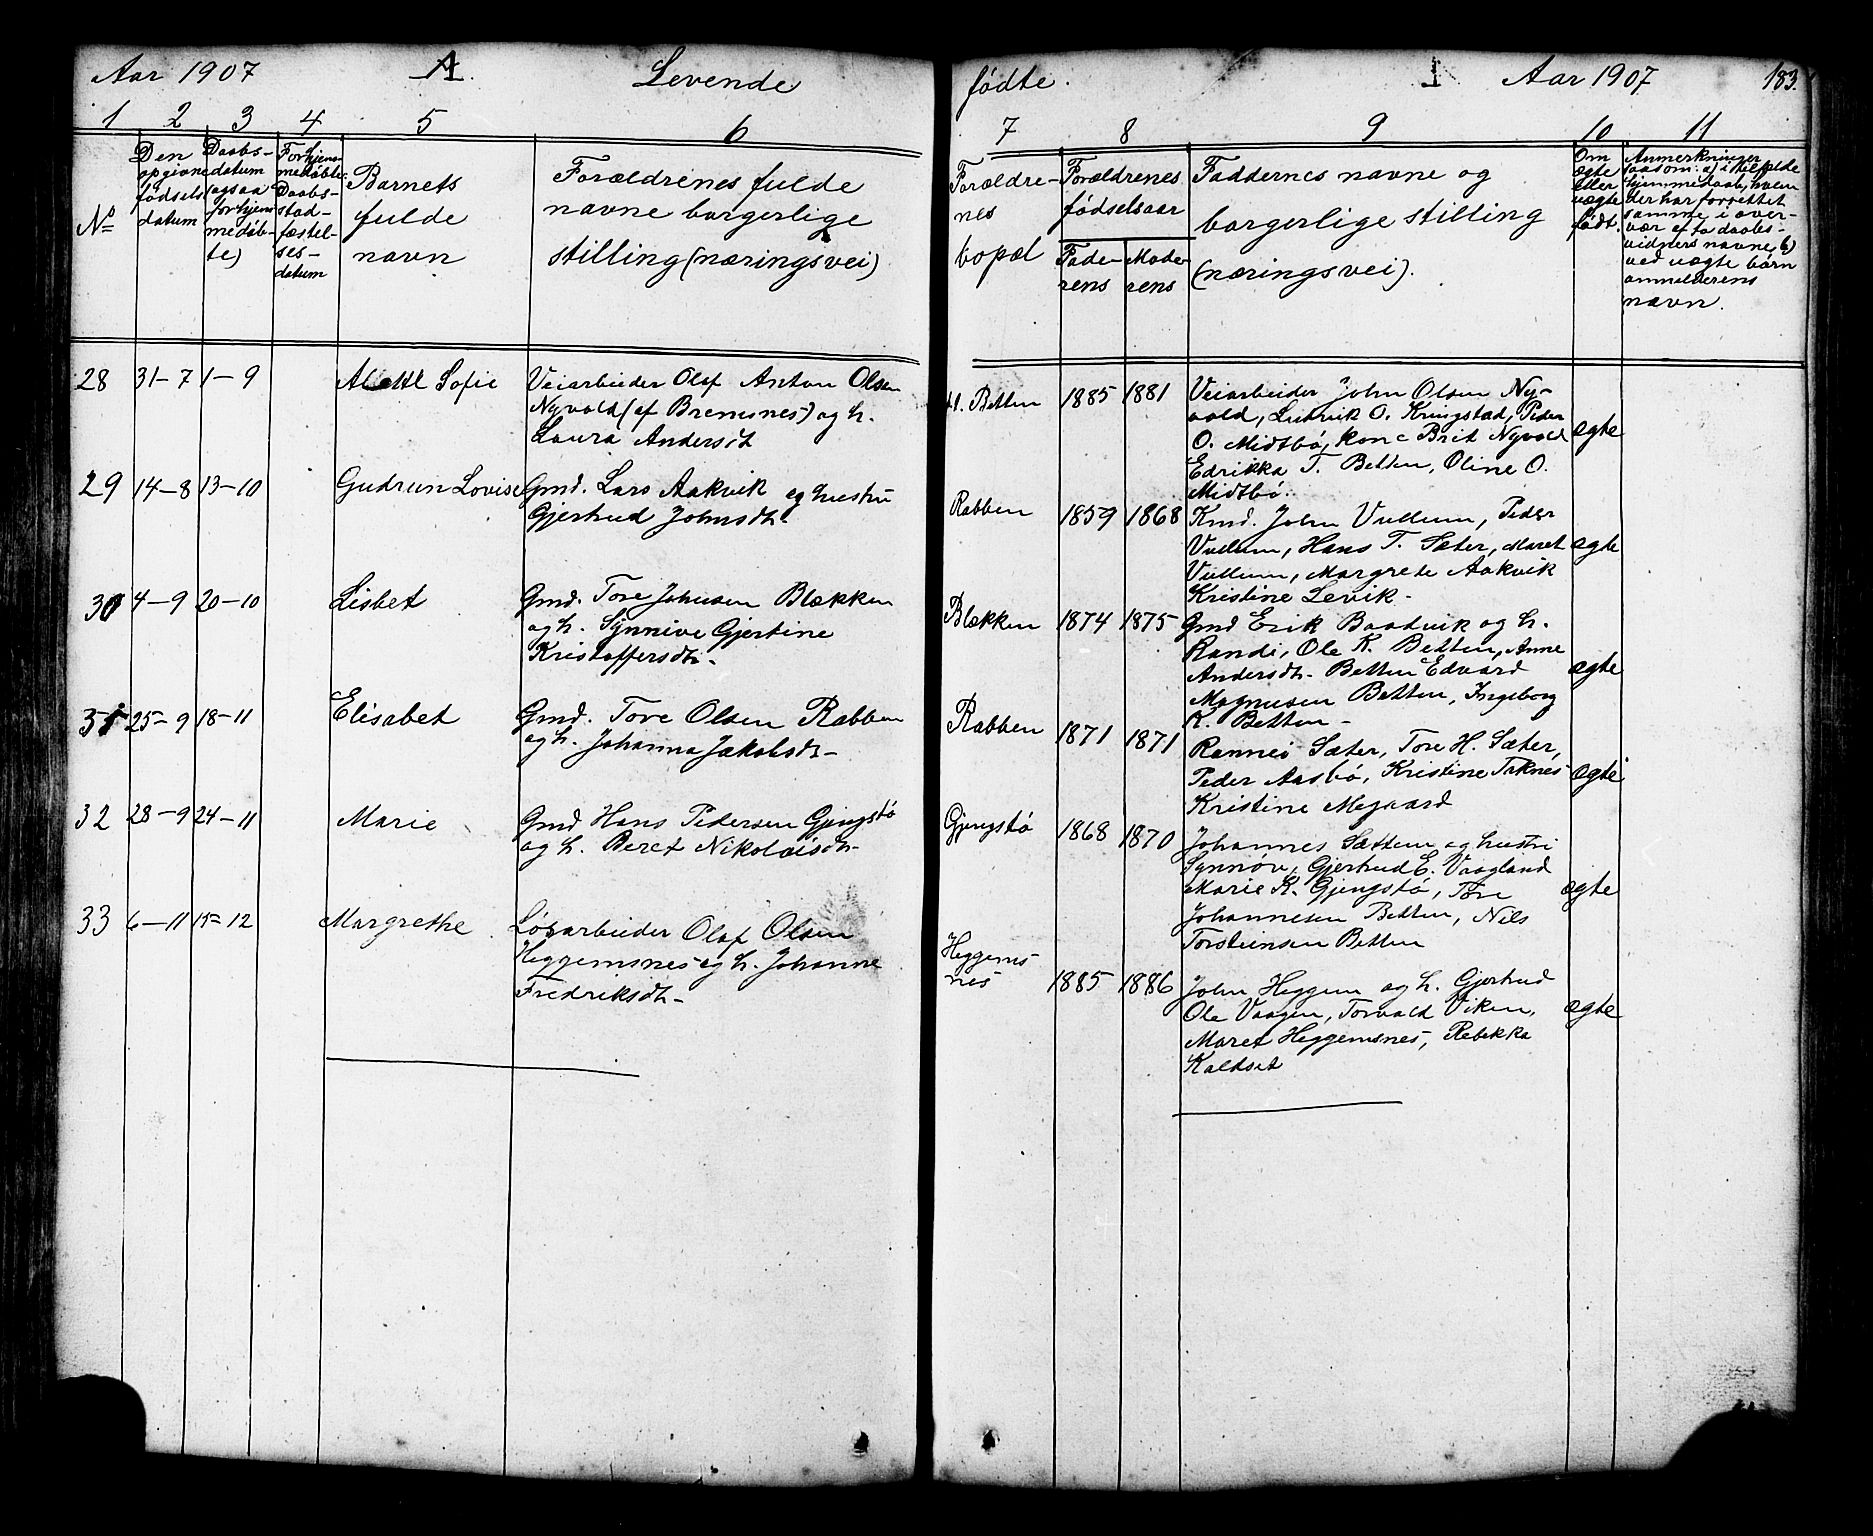 Aar 1907 A. Levende
1 2 3 4 5 6
No
Den
opgivne
fødsels
datum
Daabs-
datum
(ogsaa
for hjem-
medøb-
te)
For hjem-
medøbte:
Daabs-
stad-
fæstel-
ses-
datum
Barnets
fulde
navn
Forældrenes fulde
navne borgerlige
stilling (næringsvei)
28 31-7 1-9 Sofie Veiarbeider Olaf Anton Olsen
Nyvold (af Bremsnes) og h.
Laura Andersdt
29 14-8 13-10 Gudrun Lovise Gmd. Lars Aakvik og hustru
Gjertrud Johnsdt.
30 4-9 20-10 Lisbet Gmd. Tore Johnsen Blækken
og h. Synnive Gjertine
Kristoffersdt.
31 25-9 18-11 Elisabet Gmd. Tore Olsen Rabben
og h. Johanna Jakobsdt-
32 28-9 24-11 Marie Gmd Hans Pedersen Gjengstø
og h. Beret Nikolaisdt-
33 6-11 15-12 Margrethe Løsarbeider Olaf Olsen
Heggemsnes og h. Johanne
Fredriksdt-
fødte. 1 Aar 1907 183.
7 8 9 10 11
Forældre-
nes
bopæl
Forældrenes
fødselsaar
Fade-
rens
Mode-
rens
Faddernes navne og
borgerlige stilling
(næringsvei).
Om
ægte
eller
uægte
født.
Anmerkninger
saasom: a) i tilfælde
hjemmedaab, hvem
der har forrettet
samme i over-
vær af to daabs-
vidners navne, b)
ved uægte børn
anmelderens
navn.
Betten 1885 1881 Veiarbeider John Olsen Ny-
vold, Ludvik O. Kringstad, Peder
O. Midtbø, kone Brit Nyvold ægte
Edrikka T. Betten, Oline O.
Midtbø.
Rabben 1859 1868 Kmd. John Vullum, Peder
Vullum, Hans T. Sæter, Maret ægte
Vullum, Margrete Aakvik
Kristine Levik-
Blækken 1874 1875 Gmd Erik Baadvik og h.
Randi, Ole K. Betten, Anne
Andersdt- Betten Edvard ægte
Magnusen Betten, Ingeborg
K. Betten-
Rabben 1871 1871 Rannei Sæter, Tore H. Sæter,
Peder Aasbø, Kristine Teknes ægte
Kristine Megaard
Gjengstø 1868 1870 Johannes Sættem og hustru
Synnøv, Gjertrud E. Vaagland
Marie K. Gjengstø, Tore ægte
Johannesen Betten, Nils
Torsteinsen Betten
Heggems-
nes 1885 1886 John Heggem og h. Gjertrud
Ole Vaagen, Torvald Viken, ægte
Maret Heggemsnes, Rebekka
Kaldset